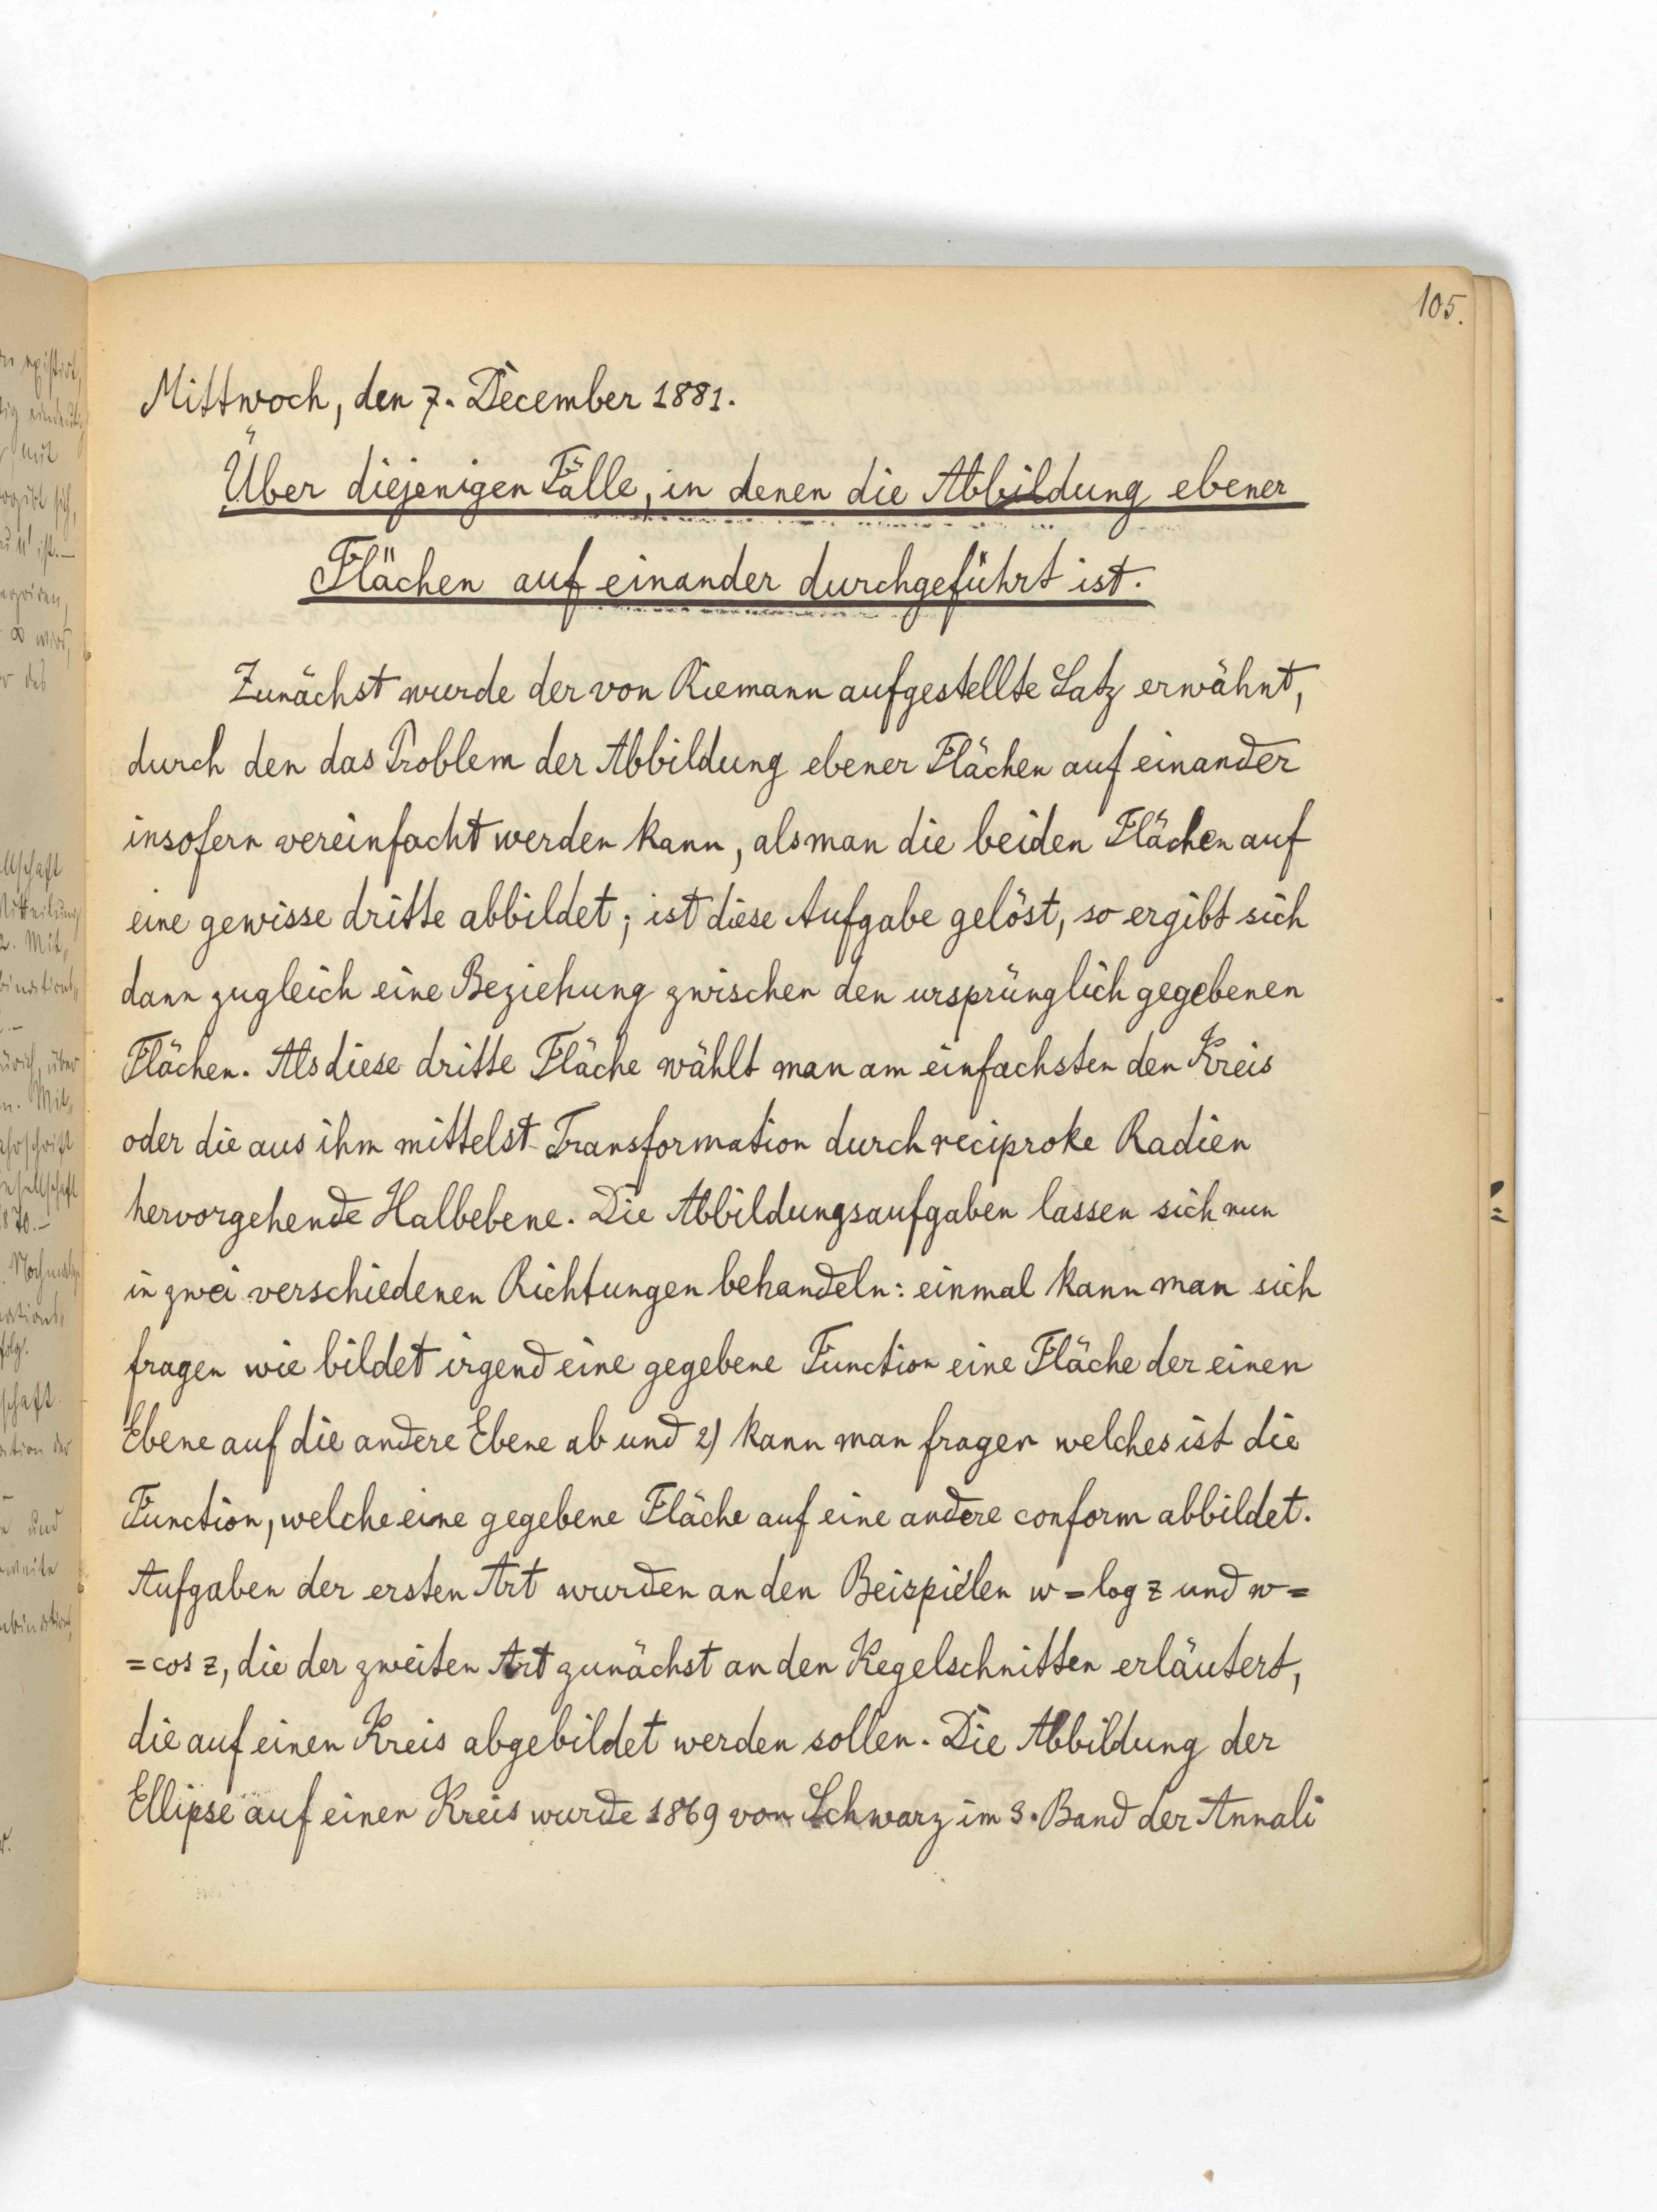 105.
Mittwoch, den 7. December 1881.
Über diejenigen Fälle, in denen die Abbildung ebener
Flächen auf einander durchgeführt ist.
Zunächst wurde der von Riemann aufgestellte Satz erwähnt,
durch den das Problem der Abbildung ebener Flächen auf einander
insofern vereinfacht werden kann, als man die beiden Flächen auf
eine gewisse dritte abbildet; ist diese Aufgabe gelöst, so ergibt sich
dann zugleich eine Beziehung zwischen den ursprünglich gegebenen
Flächen. Als diese dritte Fläche wählt man am einfachsten den Kreis
oder die aus ihm mittelst Transformation durch reciproke Radien
hervorgehende Halbebene. Die Abbildungsaufgaben lassen sich nun
in zwei verschiedenen Richtungen behandeln: einmal kann man sich
fragen wie bildet irgend eine gegebene Function eine Fläche der einen
Ebene auf die andere Ebene ab und 2) kann man fragen welches ist die
Function, welche eine gegebene Fläche auf eine andere conform abbildet.
Aufgaben der ersten Art wurden an den Beispielen w = log z und w =
= cos z, die der zweiten Art zunächst an den Kegelschnitten erläutert,
die auf einen Kreis abgebildet werden sollen. Die Abbildung der
Ellipse auf einen Kreis wurde 1869 von Schwarz im 3. Band der Annali